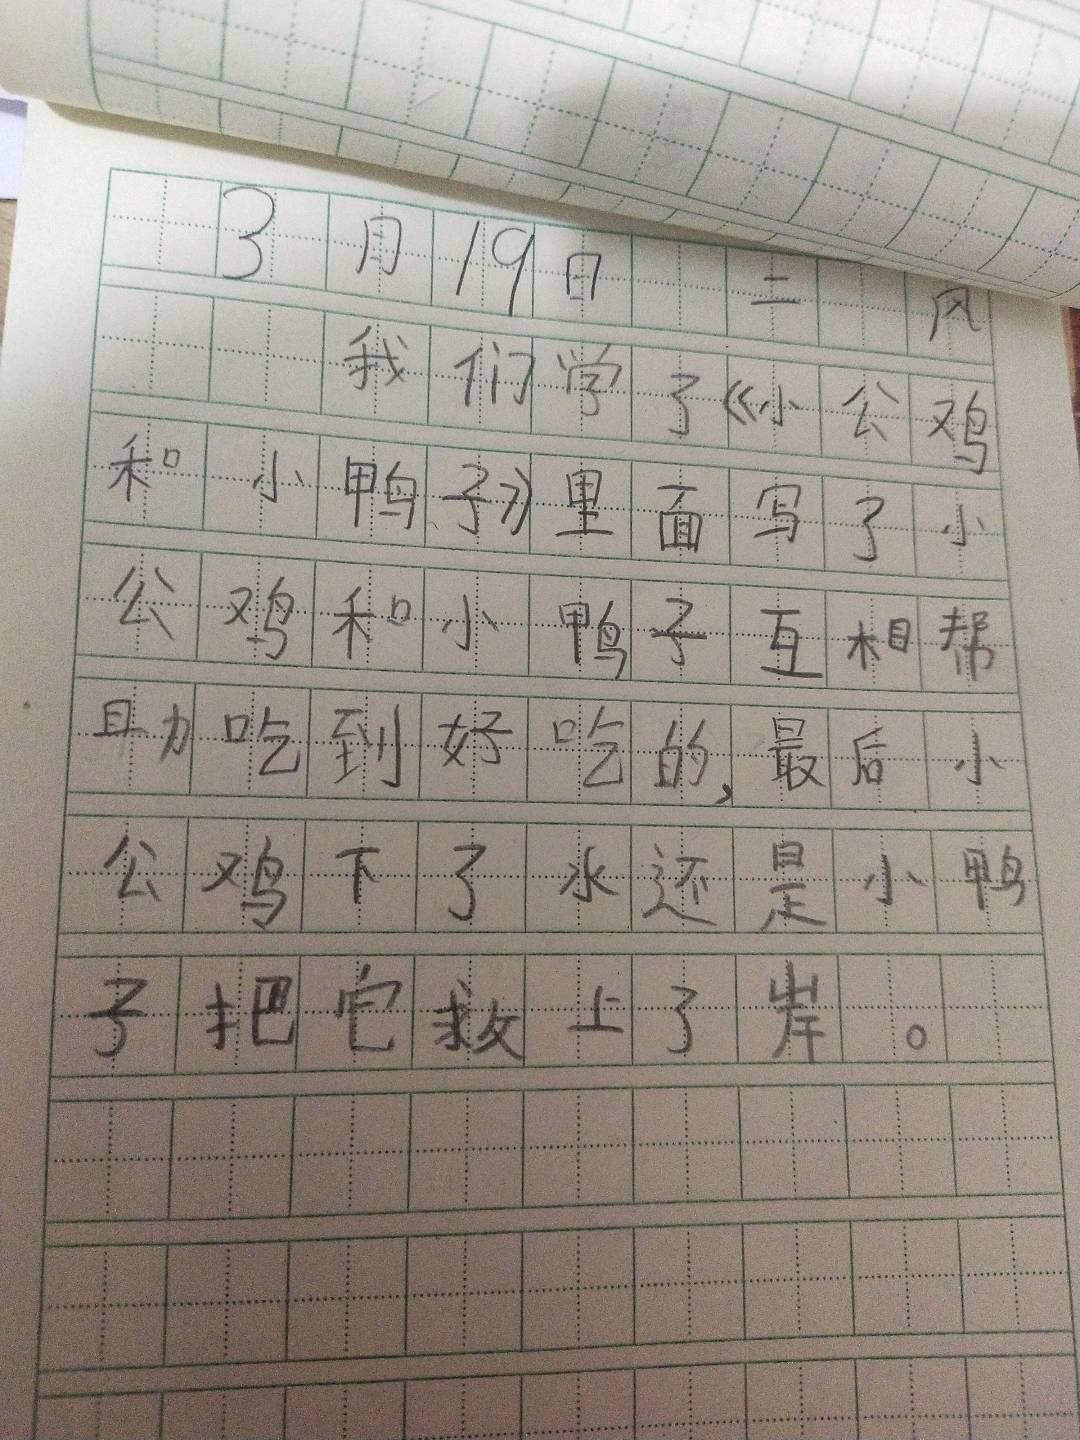 3月19日 二 风
我们学了《小公鸡
和小鸭子》里面写了小
公鸡和小鸭子互相帮
助吃到好吃的,最后小
公鸡下了水还是小鸭
子把它救上了岸。